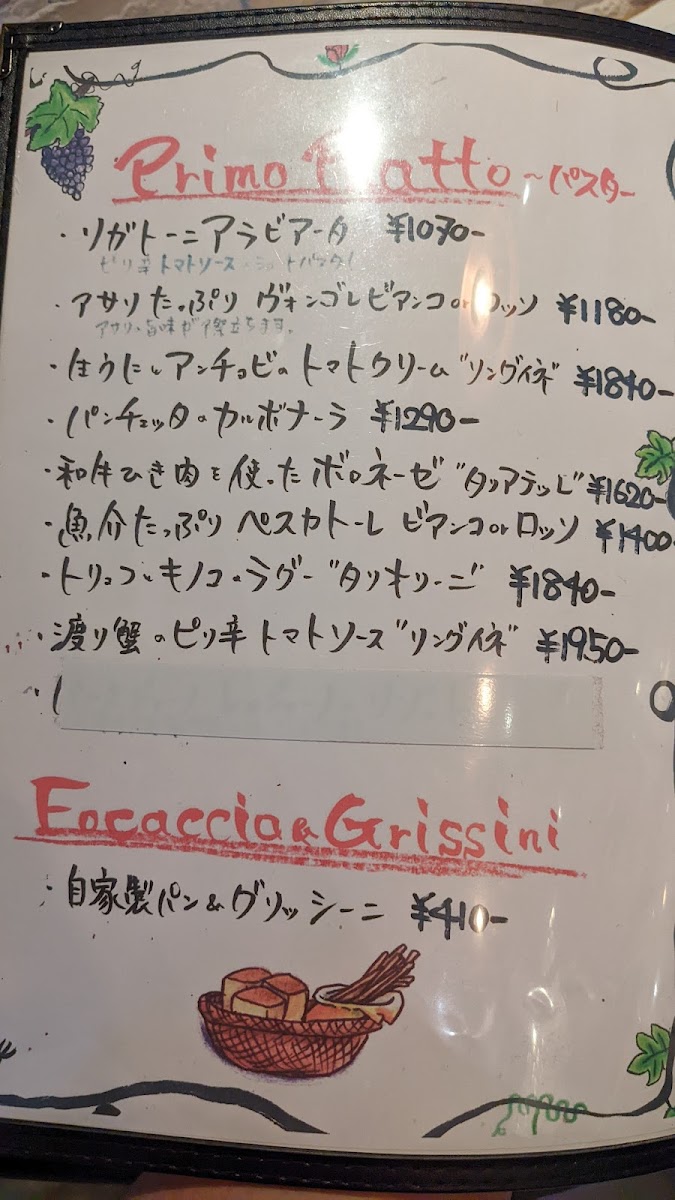 Primo Piatto ~パスタ~
・リガトーニアラビアータ ¥1070-
ピリ辛トマトソース
・アサリたっぷり ヴォンゴレビアンコorロッソ ¥1180-
アサリの旨味が際立ちます。
・生うにとアンチョビのトマトクリーム"リングイネ" ¥1840-
・パンチェッタのカルボナーラ ¥1290-
・和牛ひき肉を使ったボロネーゼ"タリアテッレ" ¥1620-
・魚介たっぷりペスカトーレ ビアンコorロッソ ¥1400-
・トリュフとキノコのラグー"タリオリーニ" ¥1840-
・渡り蟹のピリ辛トマトソース"リングイネ" ¥1950-
Focaccia & Grissini
・自家製パン&グリッシーニ ¥410-